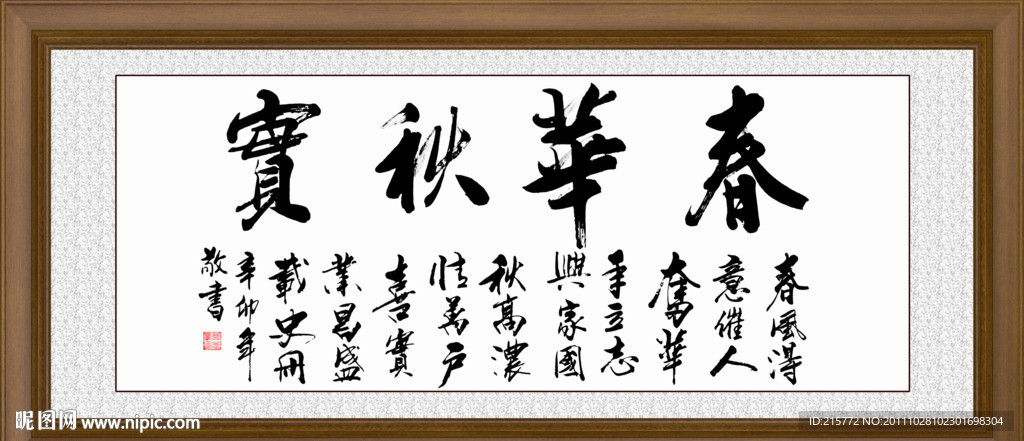 春華秋實
春風得
意催人
奮華
年立志
興家國
秋高濃
情萬戶
喜實
業昌盛
載史冊
辛卯年
敬書
昵图网 www.nipic.com
ID:215772 NO:20111028102301698304